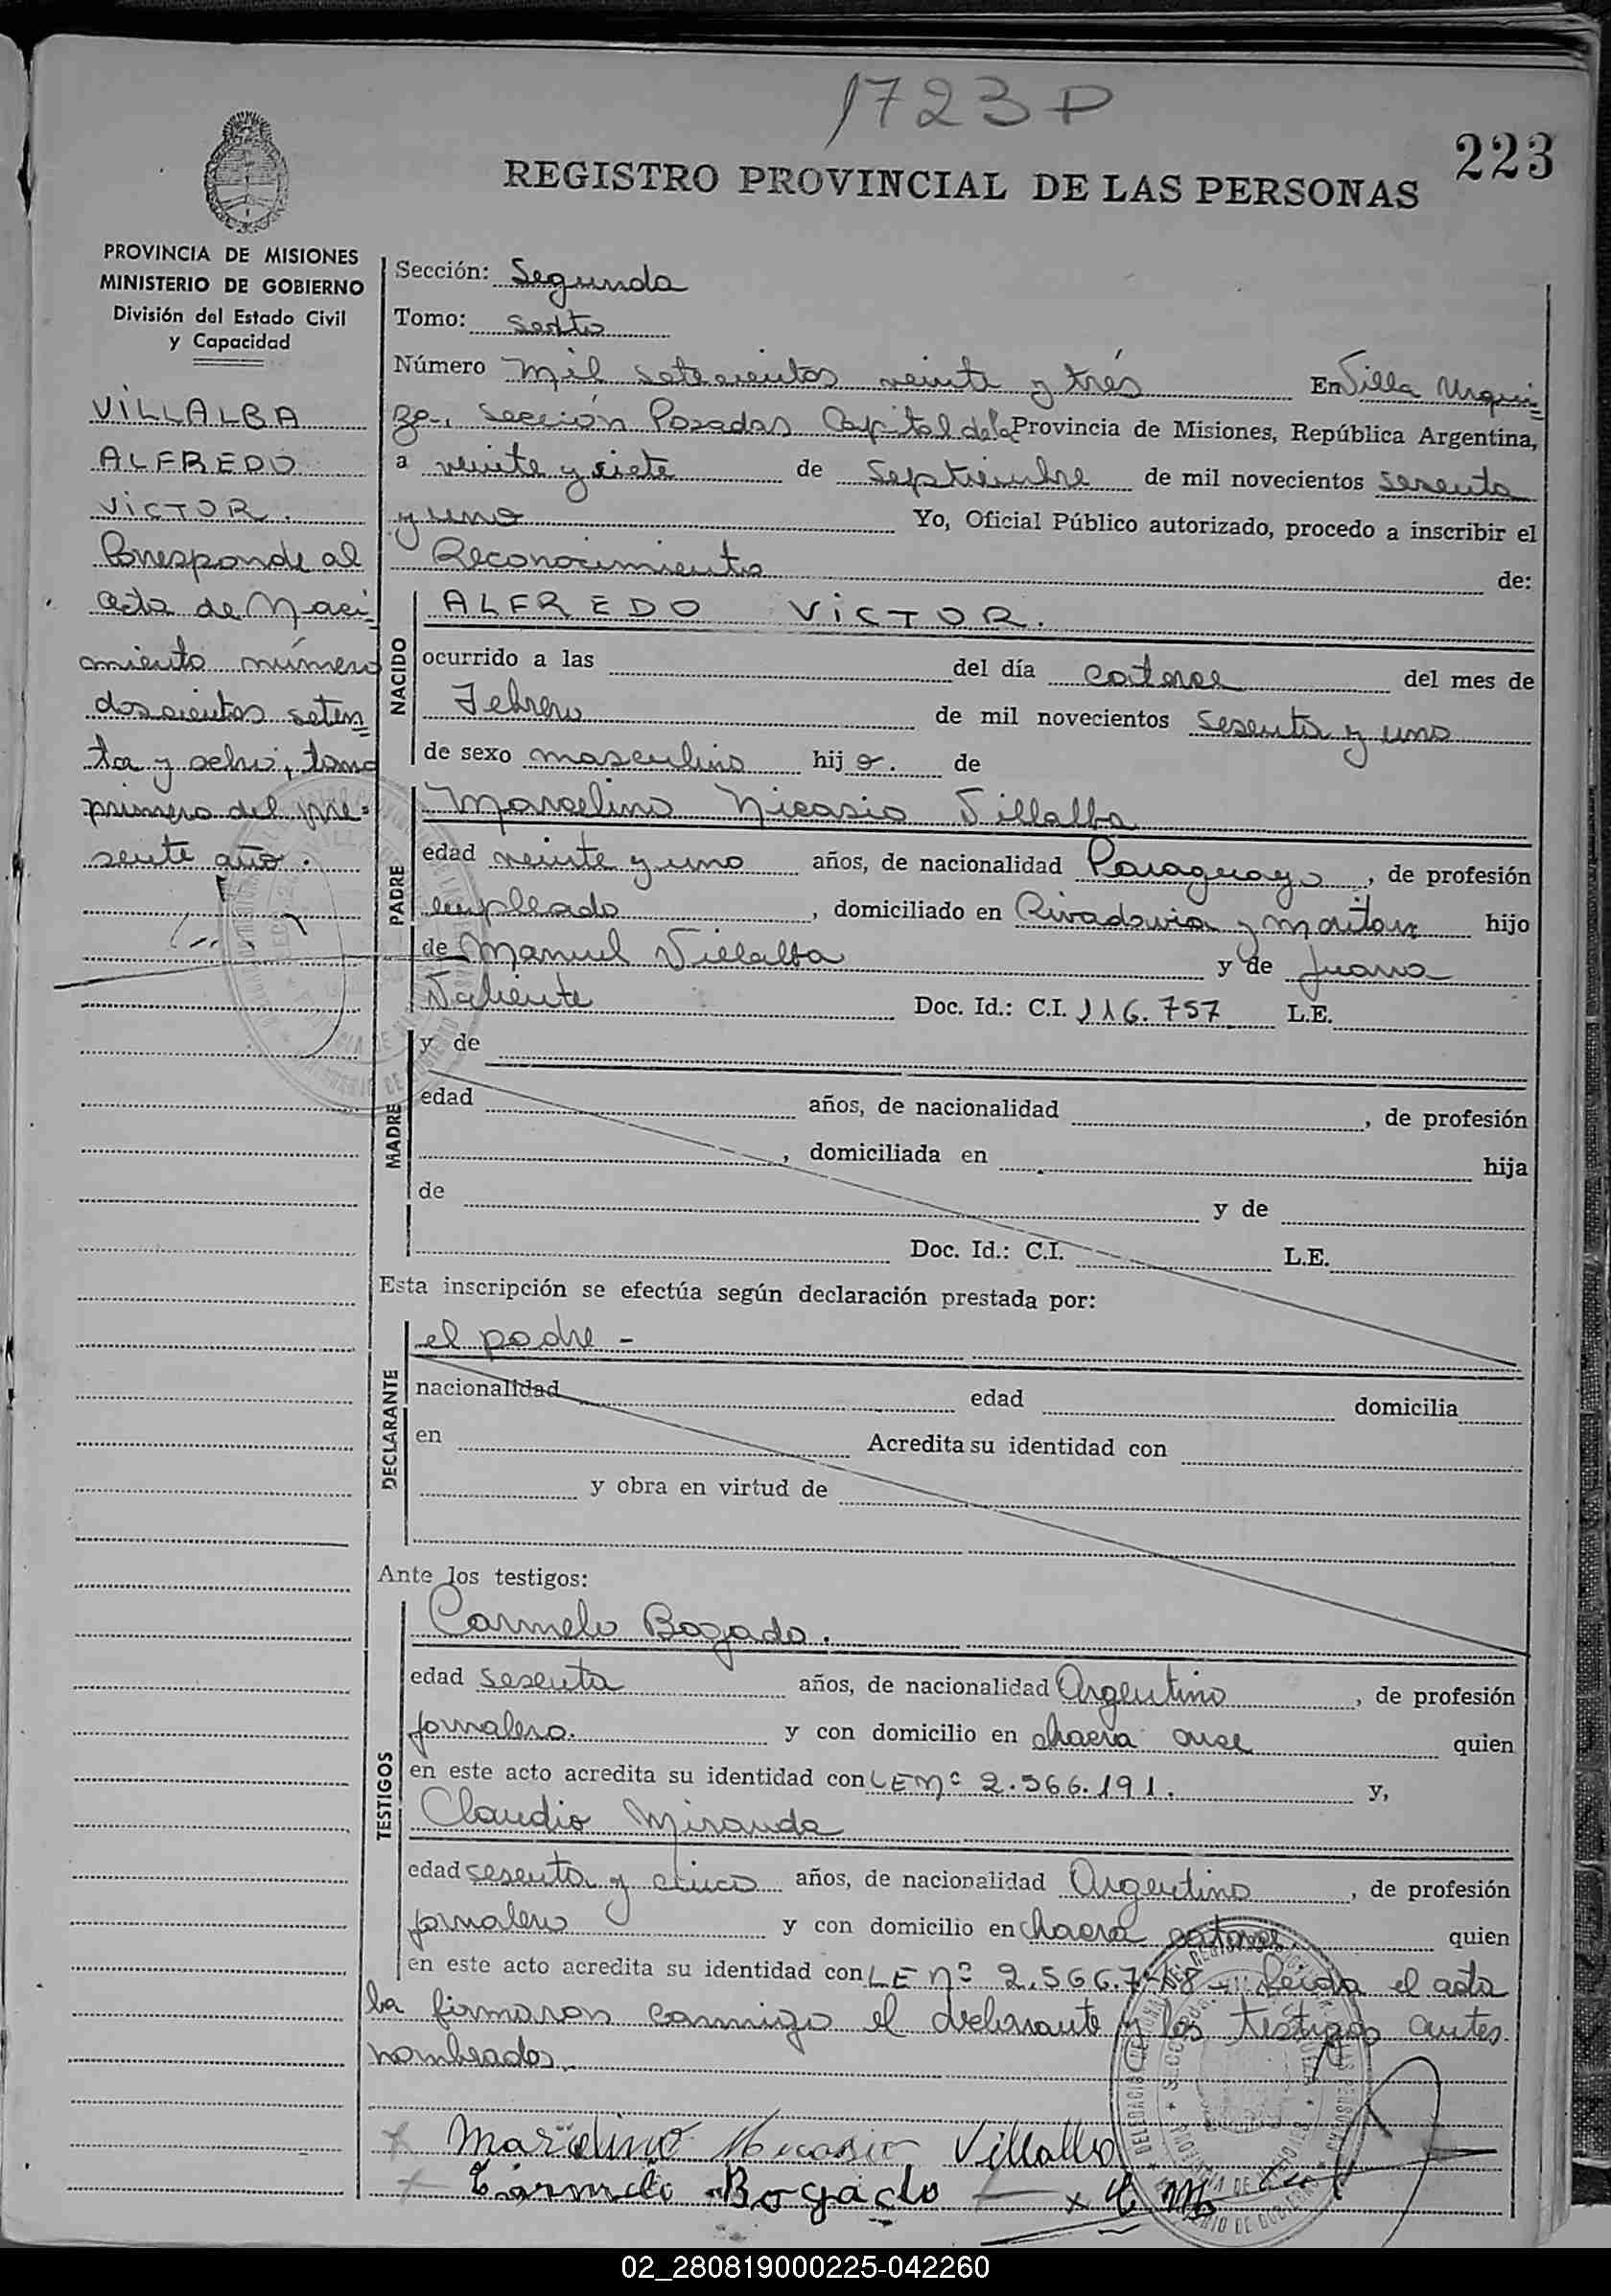 1723 P
223
REGISTRO PROVINCIAL DE LAS PERSONAS
PROVINCIA DE MISIONES
MINISTERIO DE GOBIERNO
División del Estado Civil
y Capacidad
VILLALBA
ALFREDO
VICTOR.
Corresponde al
acta de Naci=
miento número
doscientos seten=
ta y ocho, tomo
primero del pre=
sente año.
Sección: Segunda
Tomo: Sexto
Número Mil setecientos veinte y trés En Villa Urqui=
za, Sección Posadas Capital de la Provincia de Misiones, República Argentina,
a veinte y siete de Septiembre de mil novecientos sesenta
y uno Yo, Oficial Público autorizado, procedo a inscribir el
Reconocimiento de:
NACIDO
ALFREDO VICTOR.
ocurrido a las del día catorce del mes de
Febrero de mil novecientos sesenta y uno
de sexo masculino hijo. de
PADRE
Marcelino Nicasio Villalba
edad veinte y uno años, de nacionalidad Paraguayo, de profesión
empleado, domiciliado en Rivadavia y hijo
de Manuel Villalba y de Juana
Valiente Doc. Id.: C.I. 116.757 L.E.
MADRE
y de
edad años, de nacionalidad , de profesión
, domiciliada en hija
de y de
Doc. Id.: C.I. L.E.
Esta inscripción se efectúa según declaración prestada por:
DECLARANTE
el padre -
nacionalidad edad domicilia
en Acredita su identidad con
y obra en virtud de
Ante los testigos:
TESTIGOS
Carmelo Bogado.
edad sesenta años, de nacionalidad Argentino, de profesión
jornalero. y con domicilio en chacra once quien
en este acto acredita su identidad con LE Nº 2.566.191. y,
Claudio Miranda
edad sesenta y cinco años, de nacionalidad Argentino, de profesión
jornalero y con domicilio en chacra catorce. quien
en este acto acredita su identidad con LE Nº Leida el acta
la firmaron conmigo el declarante y los testigos antes
nombrados.
Marcelino Nicasio Villalba
Carmelo Bogado C M
02_280819000225-042260